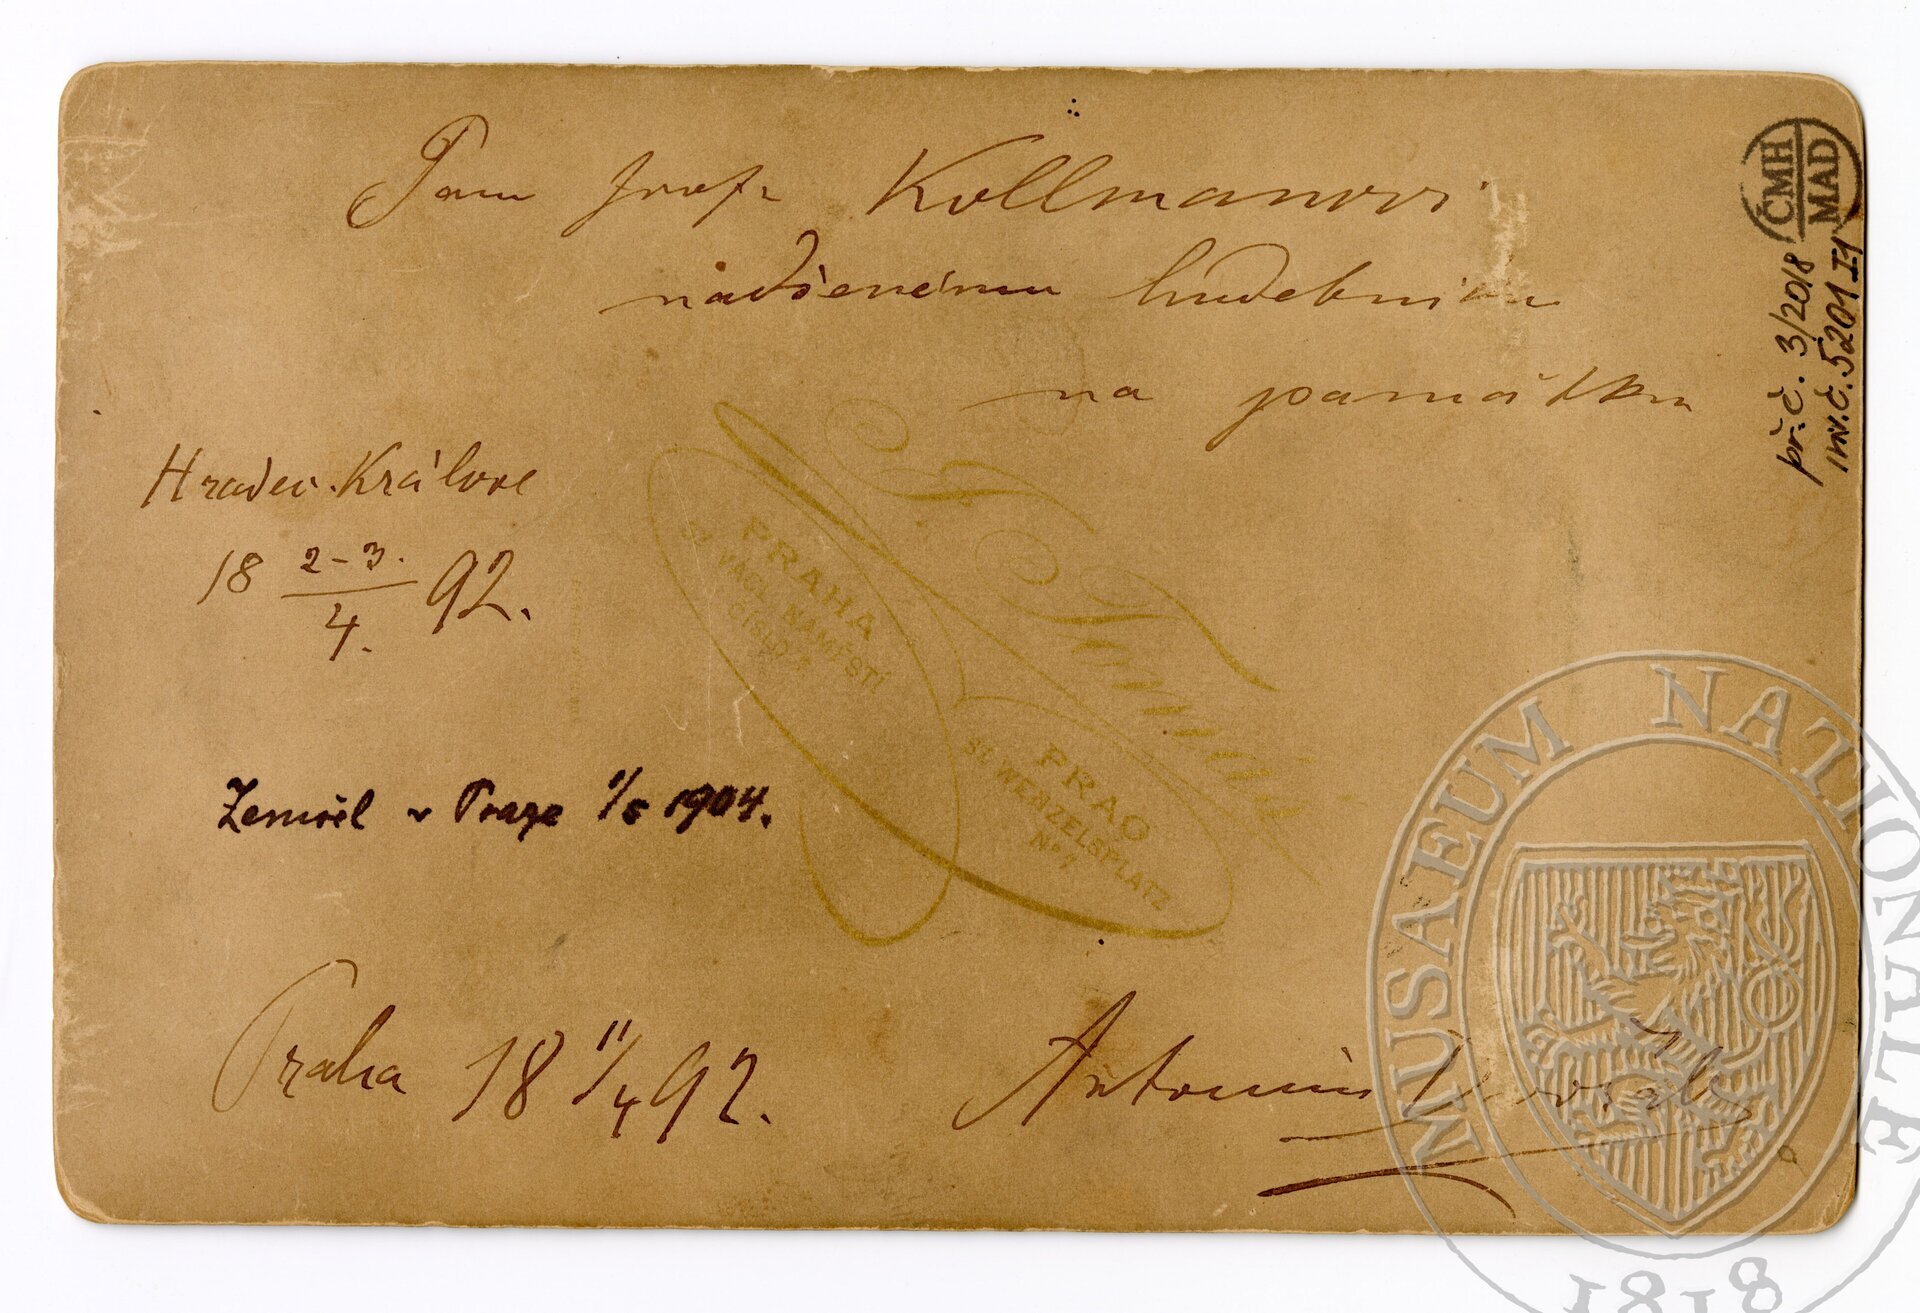 Panu Josefu Kollmanovi
nadšenému hudebníku
na památku
Hradec Králové
18 2-3./4. 92.
Zemřel v Praze 1/5 1904.
Praha 18 11/4 92.
Antonín Dvořák
ČMH
MAD
př.č. 3/2018
inv.č. 5201 F1
PRAHA
ST VÁCL. NÁMĚSTÍ
ČÍSLO 7.
PRAG
ST WENZELSPLATZ
No 7.
MUSAEUM NATIONALE
1818